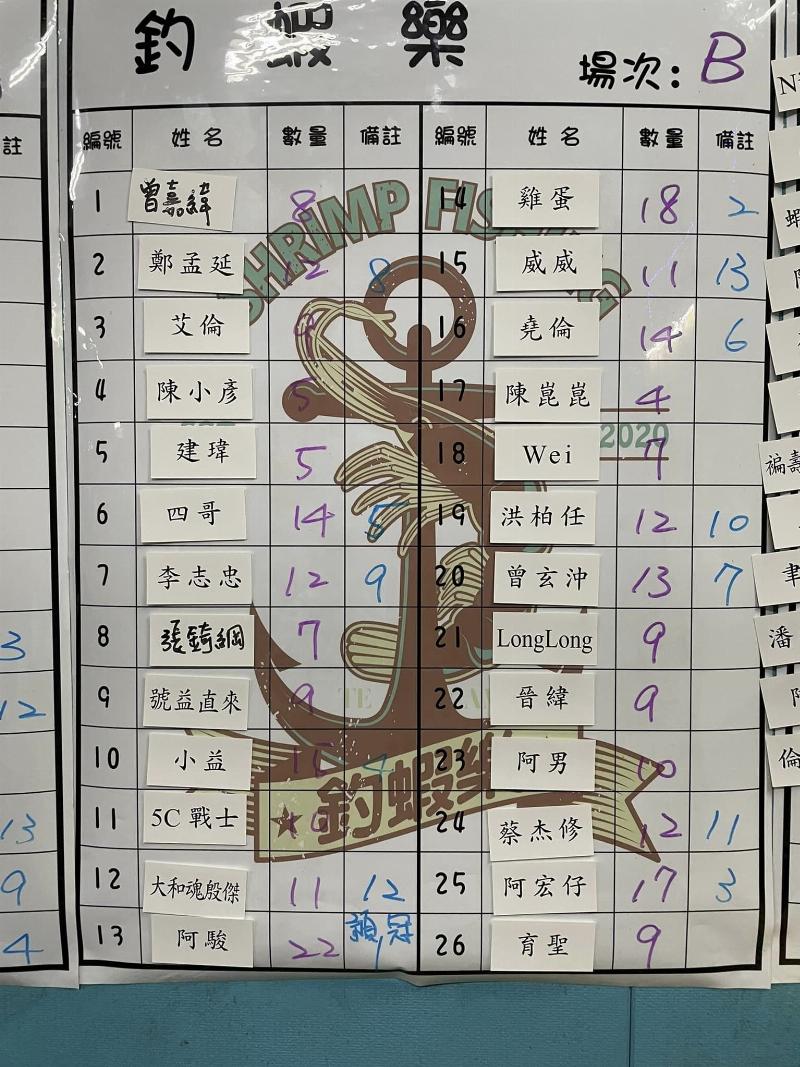 釣 蝦 樂
場次: B
編號 姓名 數量 備註 編號 姓名 數量 備註
1 曾嘉緯 8 14 雞蛋 18 2
2 鄭孟延 12 8 15 威威 11 13
3 艾倫 16 堯倫 14 6
4 陳小彥 5 17 陳崑崑 4
5 建瑋 5 18 Wei 7
6 四哥 14 5 19 洪柏任 12 10
7 李志忠 12 9 20 曾玄沖 13 7
8 張錡綱 7 21 LongLong 9
9 號益直來 9 22 晉緯 9
10 小益 4 23 阿男 10
11 5C 戰士 10 24 蔡杰修 12 11
12 大和魂殷傑 11 12 25 阿宏仔 17 3
13 阿駿 22 1 26 育聖 9
SHRIMP
2020
釣蝦樂
註
3
12
13
9
4
潘
倫